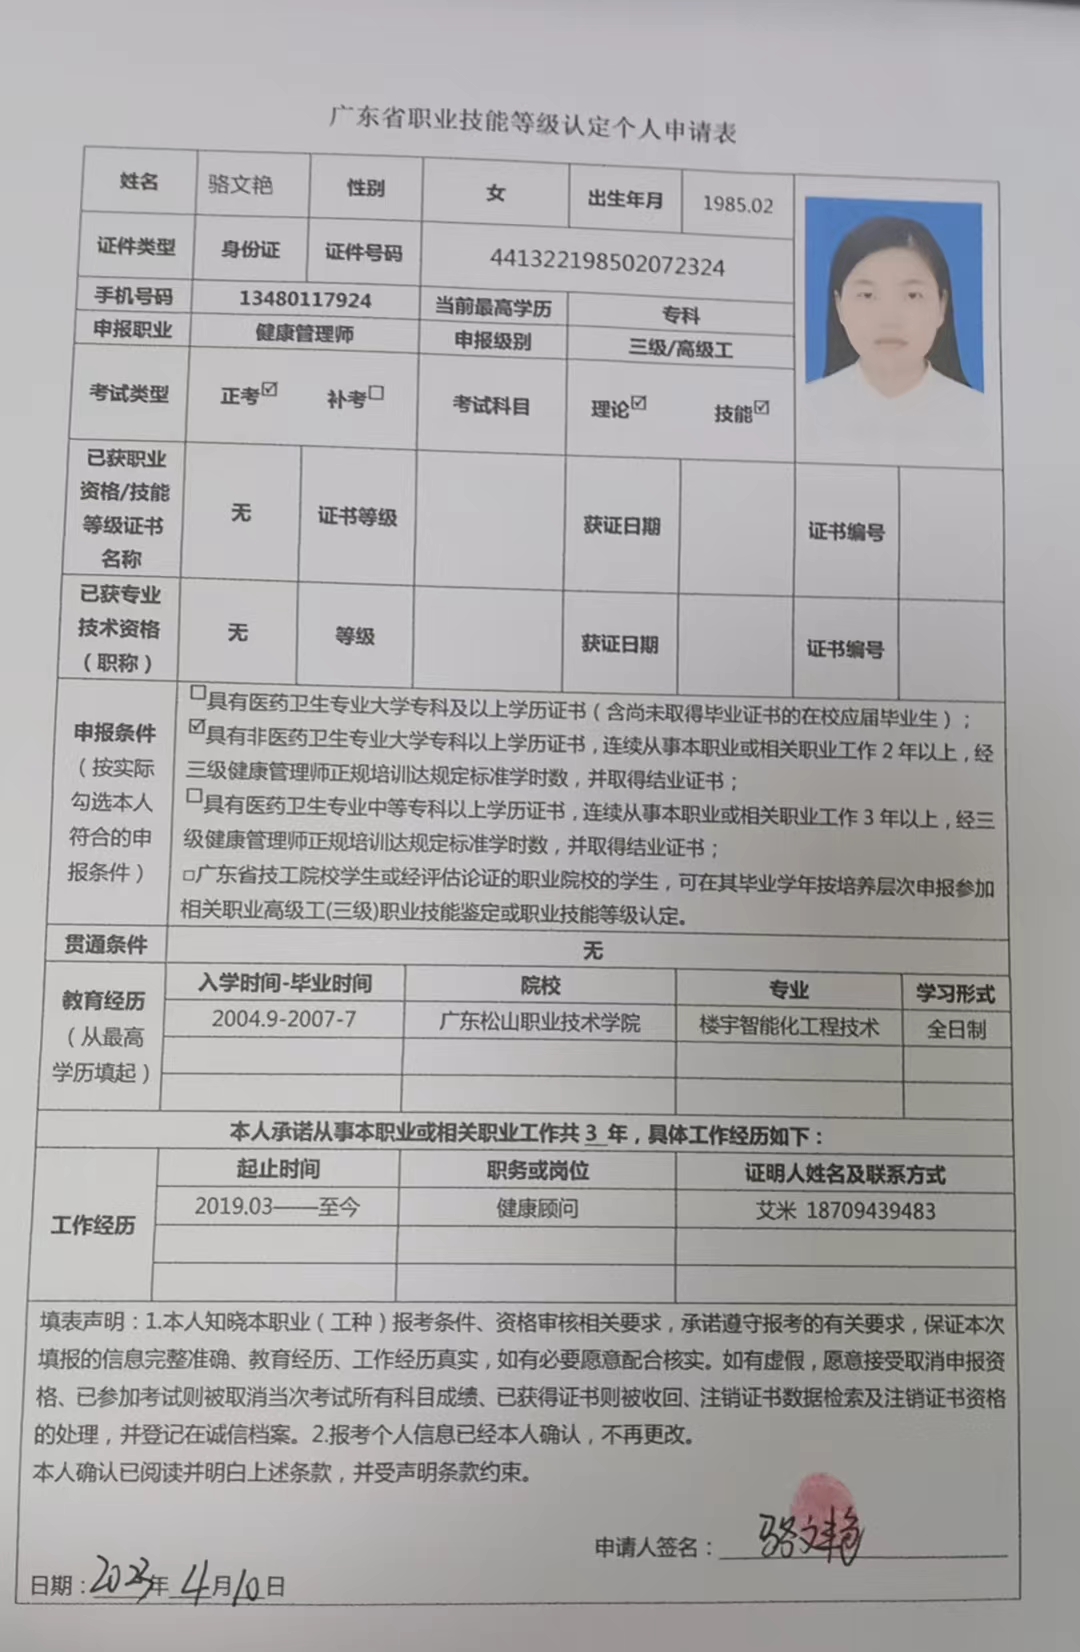 广东省职业技能等级认定个人申请表
姓名 骆文艳 性别 女 出生年月 1985.02
证件类型 身份证 证件号码 441322198502072324
手机号码 13480117924 当前最高学历 专科
申报职业 健康管理师 申报级别 三级/高级工
考试类型 正考☑ 补考☐ 考试科目 理论☑ 技能☑
已获职业
资格/技能
等级证书
名称
无 证书等级 获证日期 证书编号
已获专业
技术资格
（职称）
无 等级 获证日期 证书编号
申报条件
（按实际
勾选本人
符合的申
报条件）
☐具有医药卫生专业大学专科及以上学历证书（含尚未取得毕业证书的在校应届毕业生）；
☑具有非医药卫生专业大学专科以上学历证书，连续从事本职业或相关职业工作 2 年以上，经
三级健康管理师正规培训达规定标准学时数，并取得结业证书；
☐具有医药卫生专业中等专科以上学历证书，连续从事本职业或相关职业工作 3 年以上，经三
级健康管理师正规培训达规定标准学时数，并取得结业证书；
□广东省技工院校学生或经评估论证的职业院校的学生，可在其毕业学年按培养层次申报参加
相关职业高级工(三级)职业技能鉴定或职业技能等级认定。
贯通条件 无
教育经历
（从最高
学历填起）
入学时间-毕业时间 院校 专业 学习形式
2004.9-2007-7 广东松山职业技术学院 楼宇智能化工程技术 全日制
本人承诺从事本职业或相关职业工作共 3 年，具体工作经历如下：
工作经历
起止时间 职务或岗位 证明人姓名及联系方式
2019.03——至今 健康顾问 艾米 18709439483
填表声明：1.本人知晓本职业（工种）报考条件、资格审核相关要求，承诺遵守报考的有关要求，保证本次
填报的信息完整准确、教育经历、工作经历真实，如有必要愿意配合核实。如有虚假，愿意接受取消申报资
格、已参加考试则被取消当次考试所有科目成绩、已获得证书则被收回、注销证书数据检索及注销证书资格
的处理，并登记在诚信档案。2.报考个人信息已经本人确认，不再更改。
本人确认已阅读并明白上述条款，并受声明条款约束。
申请人签名：骆文艳
日期：2023年 4月10日